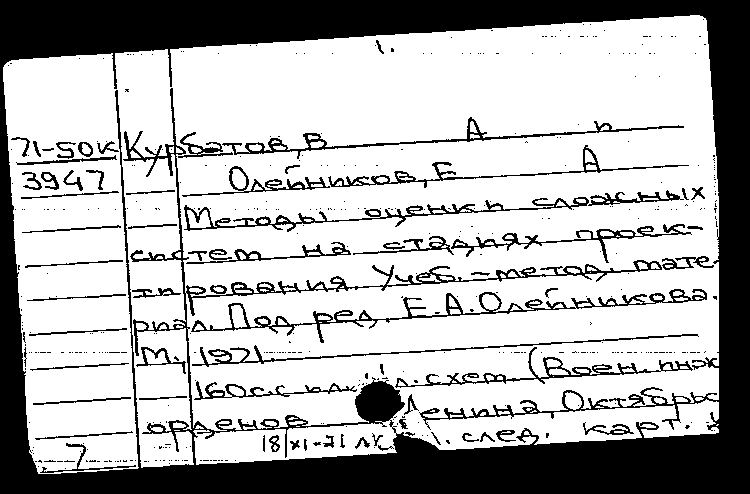 1.
71-50к Курбатов, В А п
3947 Олейников, Е А
Методы оценки сложных
систем на стадиях проек-
тирования. Учеб.-метод. мате-
риал. Под ред. Е.А.Олейникова.
М., 1971.
160с.с схем. (Воен. инж
орденов Ленина, Октябрьс
7 18/XI-71 ЛК след. карт.